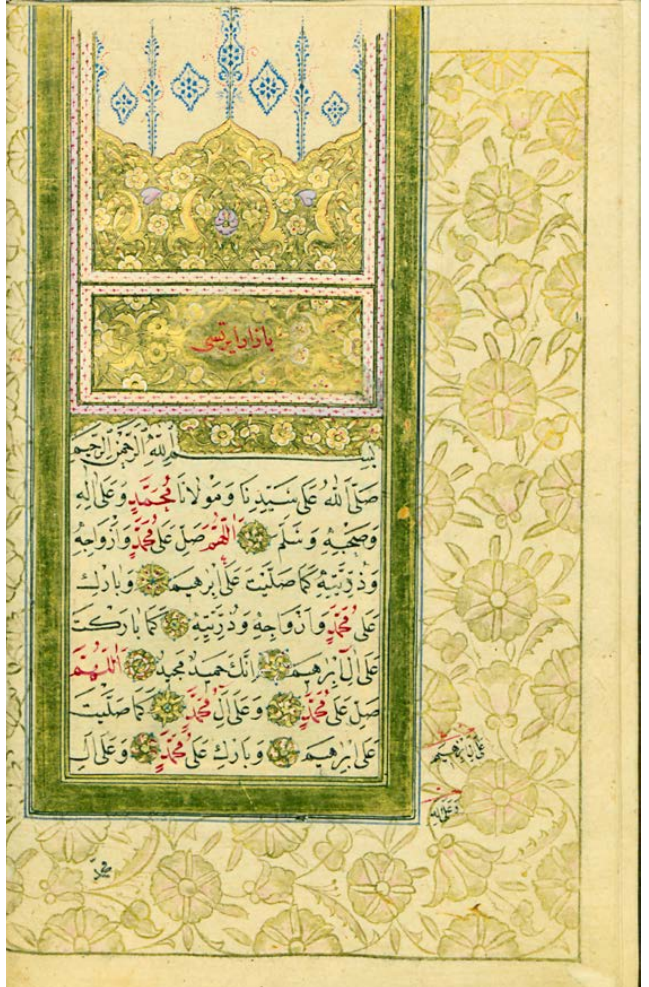 بازار ایرتسی
بسم الله الرحمن الرحيم
صَلَّى اللهُ عَلَى سَيِّدِنَا وَمَوْلَانَا مُحَمَّدٍ وَعَلَى اٰلِهِ
وَصَحْبِهِ وَسَلَّمَ اَللّٰهُمَّ صَلِّ عَلَى مُحَمَّدٍ وَاَزْوَاجِهِ
وَذُرِّيَّتِهِ كَمَا صَلَّيْتَ عَلَى اِبْرٰهِيمَ وَبَارِكْ
عَلَى مُحَمَّدٍ وَاَزْوَاجِهِ وَذُرِّيَّتِهِ كَمَا بَارَكْتَ
عَلَى اٰلِ اِبْرٰهِيمَ اِنَّكَ حَمِيدٌ مَجِيدٌ اَللّٰهُمَّ
صَلِّ عَلَى مُحَمَّدٍ وَعَلَى اٰلِ مُحَمَّدٍ كَمَا صَلَّيْتَ
عَلَى اِبْرٰهِيمَ وَبَارِكْ عَلَى مُحَمَّدٍ وَعَلَى اٰلِ
وَعَلَى اٰلِهِ
مُحَمَّد